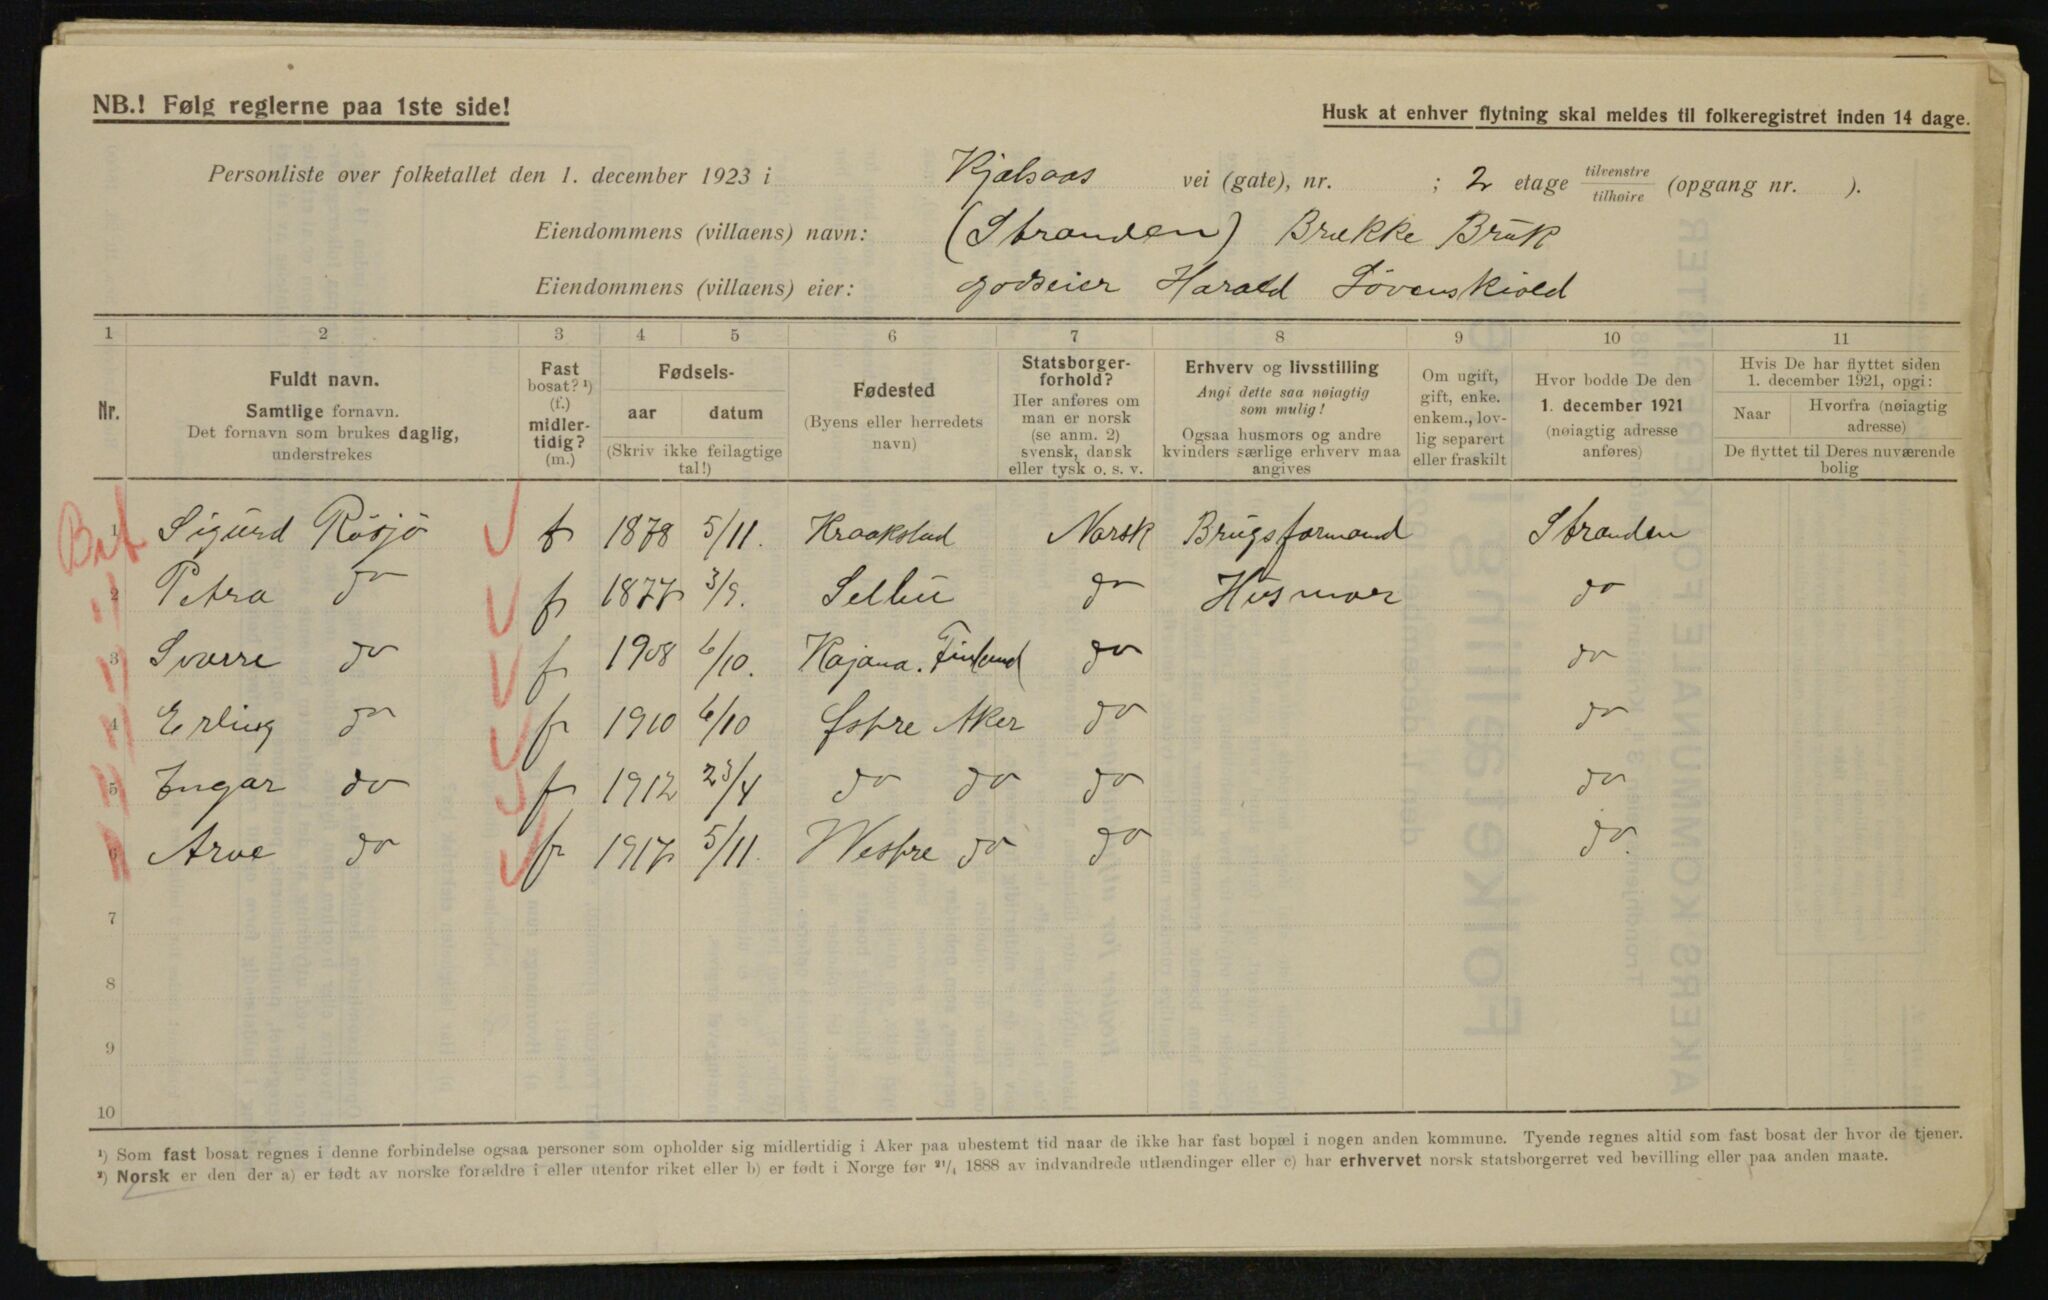 NB.! Følg reglerne paa 1ste side!
Husk at enhver flytning skal meldes til folkeregistret inden 14 dage.
Personliste over folketallet den 1. december 1923 i Kjelsaas vei (gate), nr. ; 2 etage tilvenstre/tilhøire (opgang nr. ).
Eiendommens (villaens) navn: (Stranden) Brække Bruk
Eiendommens (villaens) eier: godseier Harald Løvenskiold
1 2 3 4 5 6 7 8 9 10 11
Nr.
Fuldt navn.
Samtlige fornavn.
Det fornavn som brukes daglig,
understrekes
Fast
bosat? ¹)
(f.)
midler-
tidig?
(m.)
Fødsels-
aar datum
(Skriv ikke feilagtige
tal!)
Fødested
(Byens eller herredets
navn)
Statsborger-
forhold?
Her anføres om
man er norsk
(se anm. 2)
svensk, dansk
eller tysk o. s. v.
Erhverv og livsstilling
Angi dette saa nøiagtig
som mulig!
Ogsaa husmors og andre
kvinders særlige erhverv maa
angives
Om ugift,
gift, enke.
enkem., lov-
lig separert
eller fraskilt
Hvor bodde De den
1. december 1921
(nøiagtig adresse
anføres)
Hvis De har flyttet siden
1. december 1921, opgi:
Naar
Hvorfra (nøiagtig
adresse)
De flyttet til Deres nuværende
bolig
1 Sigurd Røsjø f 1878 5/11. Kraakstad Norsk Brugsformand Stranden
2 Petra do f 1877 3/9. Selbu do Husmor do
3 Sverre do f 1908 6/10. Kajana. Finland do do
4 Erling do f 1910 6/10 Østre Aker do do
5 Ingar do f 1912 23/4 do do do do
6 Arve do f 1917 5/11. Vestre do do do.
7
8
9
10
¹) Som fast bosat regnes i denne forbindelse ogsaa personer som opholder sig midlertidig i Aker paa ubestemt tid naar de ikke har fast bopæl i nogen anden kommune. Tyende regnes altid som fast bosat der hvor de tjener.
²) Norsk er den der a) er født av norske forældre i eller utenfor riket eller b) er født i Norge før ²¹/₄ 1888 av indvandrede utlændinger eller c) har erhvervet norsk statsborgerret ved bevilling eller paa anden maate.